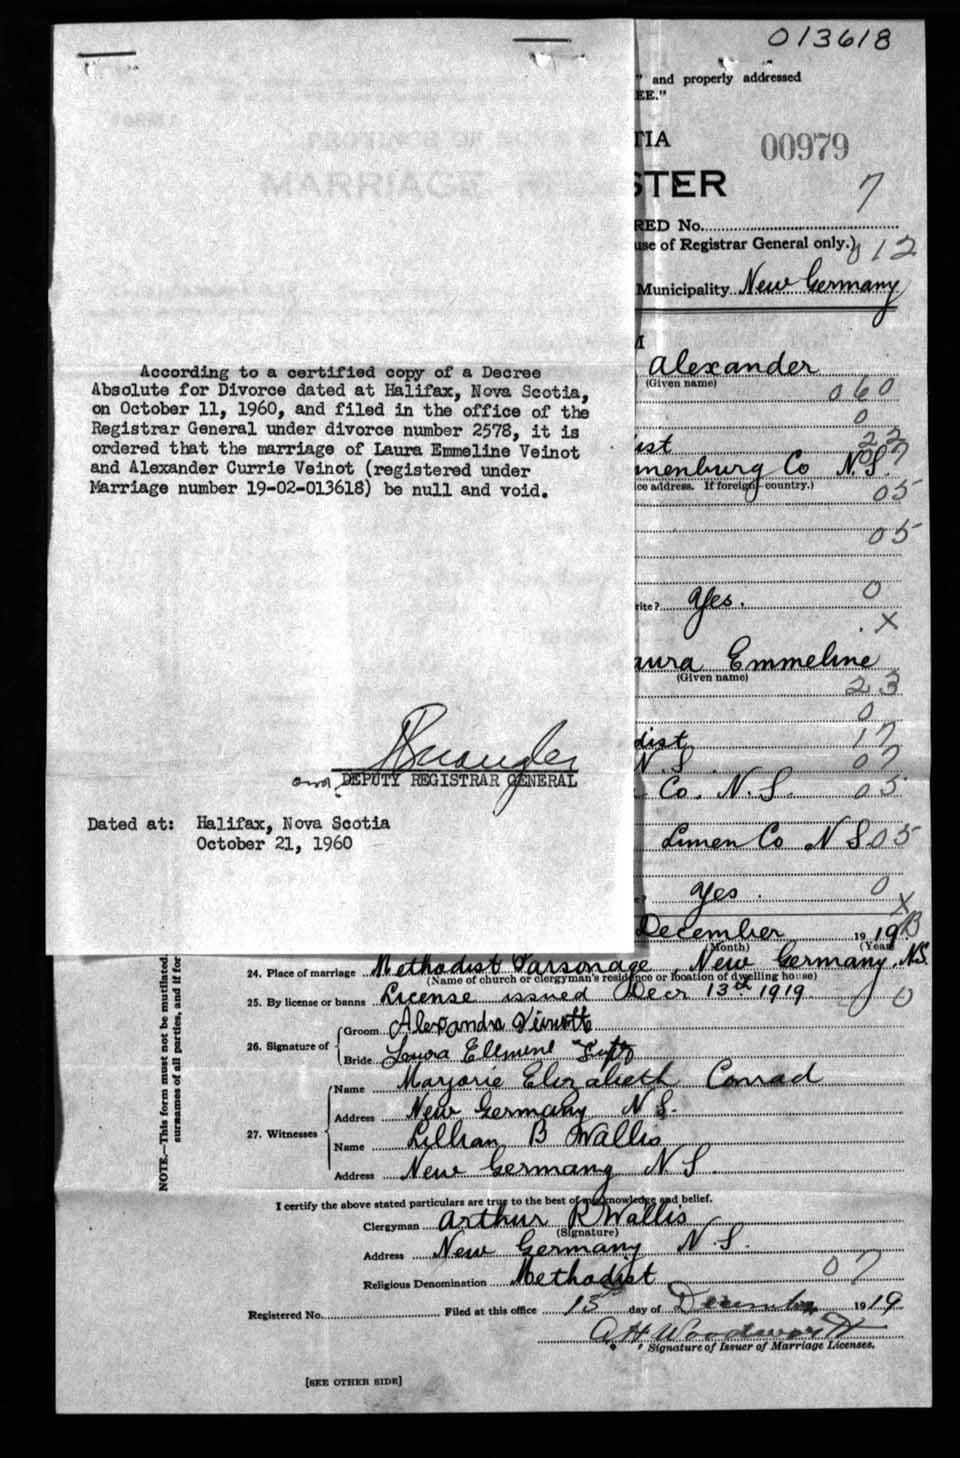 013618
" and properly addressed
EE."
TIA
00979
STER
7
RED No.
use of Registrar General only.)
012
Municipality New Germany
Alexander
(Given name)
060
0
ist 22
menburg Co N.S. 07
ce address. If foreign country.)
05
05
rite? Yes. 0
X
aura Emmeline
(Given name)
23
0
dist 17
N.S. 07
Co. N.S. 05
Lunen Co N S 05
Yes. 0
X
December 1919
(Month) (Year)
According to a certified copy of a Decree
Absolute for Divorce dated at Halifax, Nova Scotia,
on October 11, 1960, and filed in the office of the
Registrar General under divorce number 2578, it is
ordered that the marriage of Laura Emmeline Veinot
and Alexander Currie Veinot (registered under
Marriage number 19-02-013618) be null and void.
DEPUTY REGISTRAR GENERAL
Dated at: Halifax, Nova Scotia
October 21, 1960
NOTE.—This form must not be mutilated.
surnames of all parties, and if for
24. Place of marriage Methodist Parsonage, New Germany, N.S.
(Name of church or clergyman's residence or location of dwelling house)
25. By license or banns License issued Decr 13th 1919 0
26. Signature of
Groom Alexandra
Bride Laura
27. Witnesses
Name Marjorie Elizabeth Conrad
Address New Germany N S.
Name Lillian B Wallis
Address New Germany N S.
I certify the above stated particulars are true to the best of my knowledge and belief.
Clergyman Arthur R Wallis
(Signature)
Address New Germany N.S.
Religious Denomination Methodist 07
Registered No. Filed at this office 15 day of December 1919
A H Woodworth
Signature of Issuer of Marriage Licenses.
[SEE OTHER SIDE]